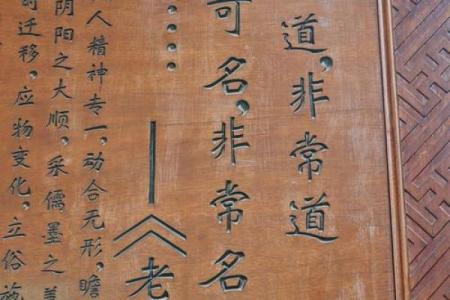 道,非常道
可名,非常名
……——《老
人精神专一,动合无形,瞻
阴阳之大顺,采儒墨之善
时迁移,应物变化,立俗施